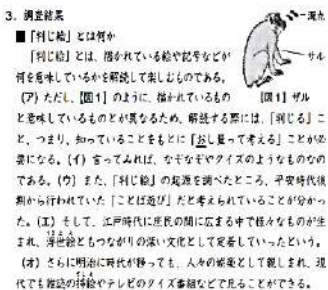 3．調査結果
■「判じ絵」とは何か
「判じ絵」とは、描かれている絵や記号などが
何を意味しているかを解読して楽しむものである。
(ア) ただし、【図1】のように、描かれているもの
と意味しているものとが異なるため、解読する際には、「判じる」こ
と、つまり、知っていることをもとに「おし量って考える」ことが必
要になる。(イ) 言ってみれば、なぞなぞやクイズのようなものなの
である。(ウ) また、「判じ絵」の起源を調べたところ、平安時代後
期から行われていた「ことば遊び」だと考えられていることが分かっ
た。(エ) そして、江戸時代に庶民の間に広まる中で様々なものが生
まれ、浮世絵ともつながりの深い文化として定着していったという。
(オ) さらに明治に時代が移っても、人々の娯楽として親しまれ、現
代でも雑誌の挿絵やテレビのクイズ番組などで見ることができる。
濁点
【図1】ザル